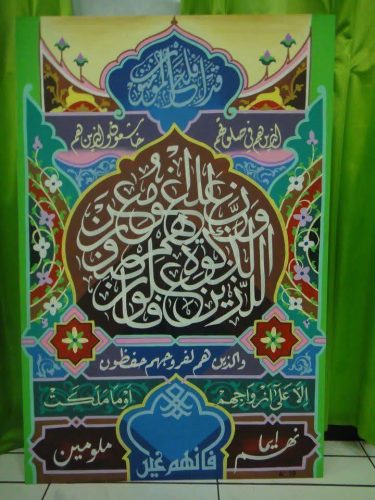 قد افلح المؤمنون
الذين هم في صلاتهم خاشعون والذين هم
عن اللغو معرضون
والذين هم للزكوة فاعلون
والذين هم لفروجهم حفظون
الا على ازواجهم او ما ملكت
ايمانهم فانهم غير ملومين